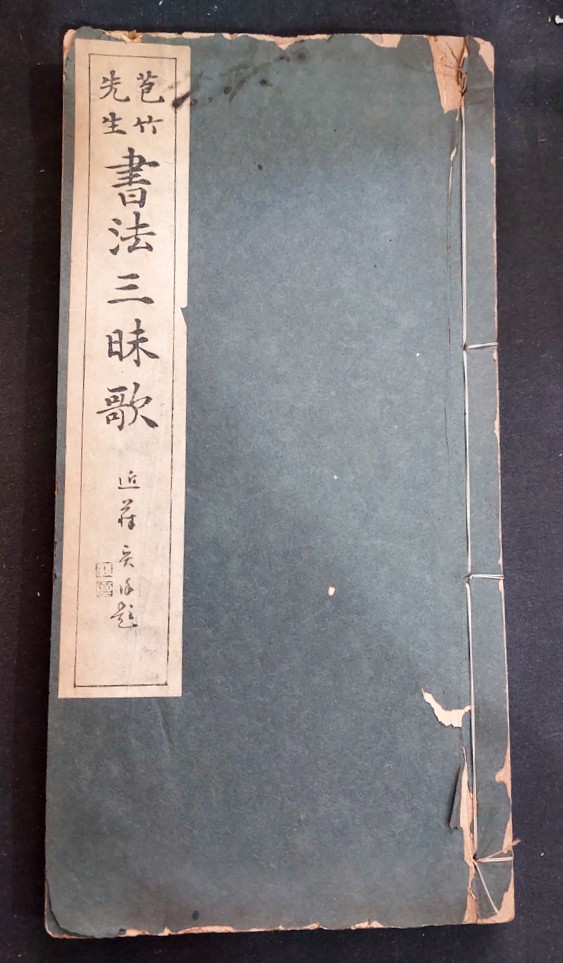 苞竹
先生
書法三昧歌
近 題